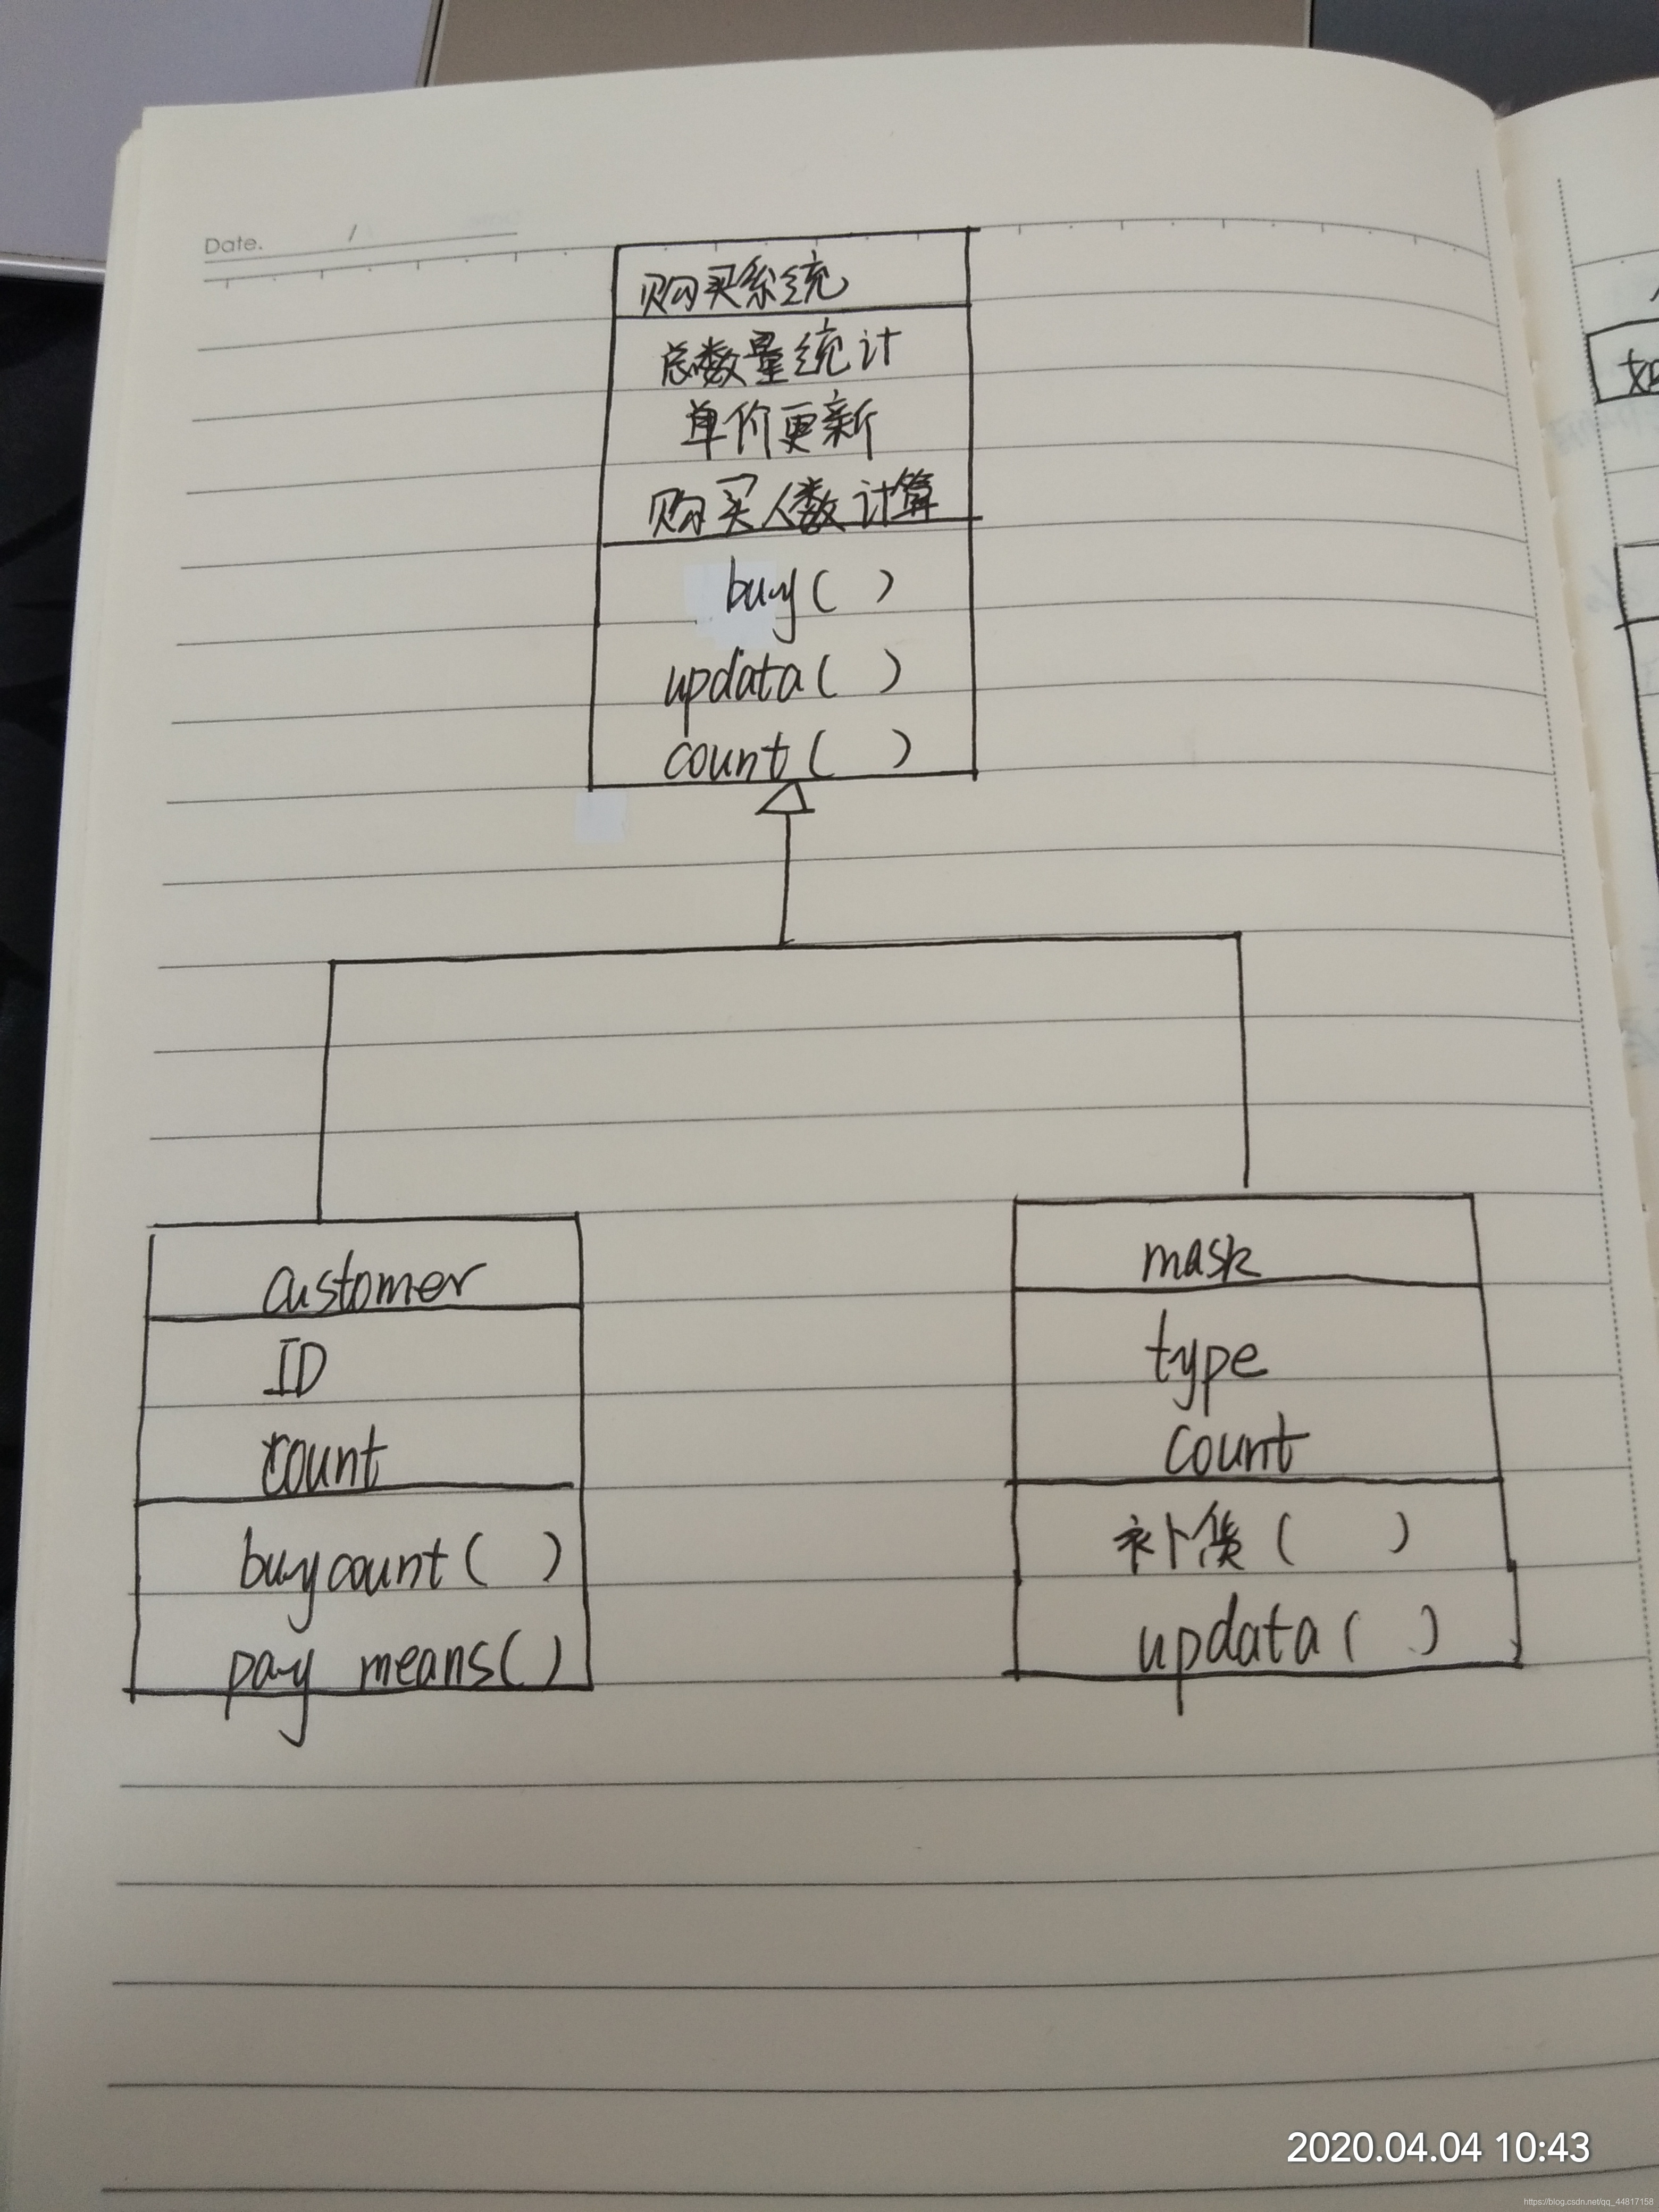 Date. /
购买系统
总数量统计
单价更新
购买人数计算
buy( )
updata( )
count( )
customer
ID
count
buycount( )
pay means()
mask
type
count
补货( )
updata( )
2020.04.04 10:43
https://blog.csdn.net/qq_44817158